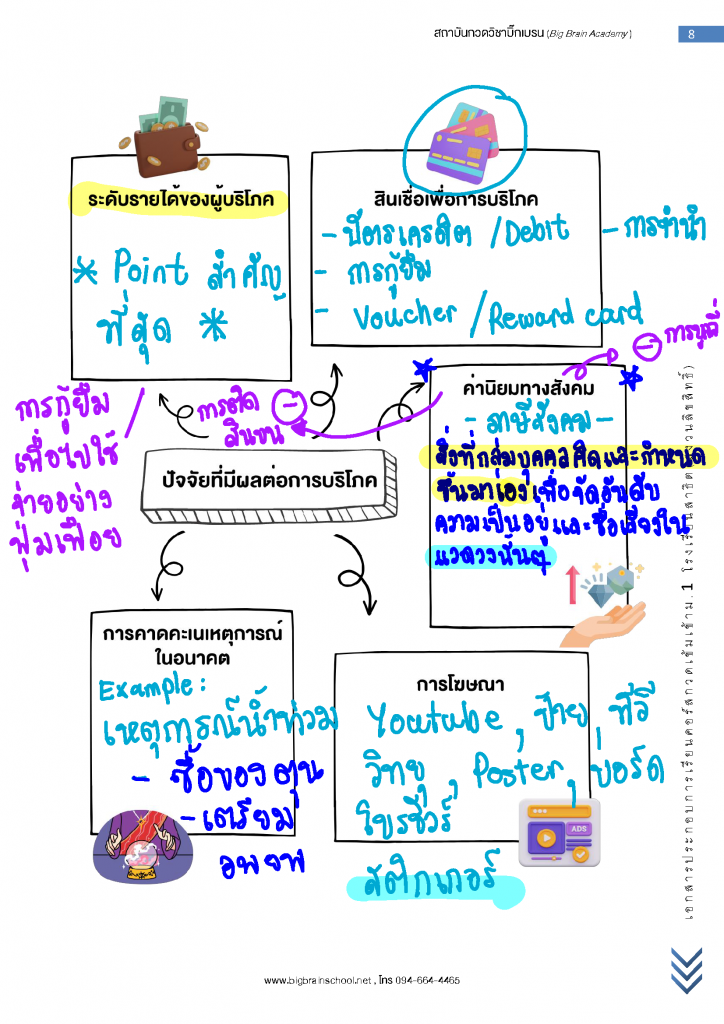 สถาบันกวดวิชาบิ๊กเบรน (Big Brain Academy)
8
ระดับรายได้ของผู้บริโภค
* Point สำคัญ
ที่สุด *
สินเชื่อเพื่อการบริโภค
- บัตรเครดิต /Debit
- การกู้ยืม
- Voucher /Reward card
ค่านิยมทางสังคม
- ภาษีสังคม -
สิ่งที่กลุ่มบุคคลคิดและกำหนด
ขึ้นมาเองเพื่อจัดอันดับ
ความเป็นอยู่และชื่อเสียงใน
การกู้ยืม
เพื่อไปใช้
จ่ายอย่าง
ฟุ่มเฟือย
การติด
สินบน
ปัจจัยที่มีผลต่อการบริโภค
การคาดคะเนเหตุการณ์
ในอนาคต
Example :
เหตุการณ์น้ำท่วม
- ซื้อของตุน
- เตรียม
อพยพ
การโฆษณา
Youtube , ป้าย , ทีวี
วิทยุ , Poster , บอร์ด
โบรชัวร์
สติกเกอร์
ADS
www.bigbrainschool.net , โทร 094-664-4465